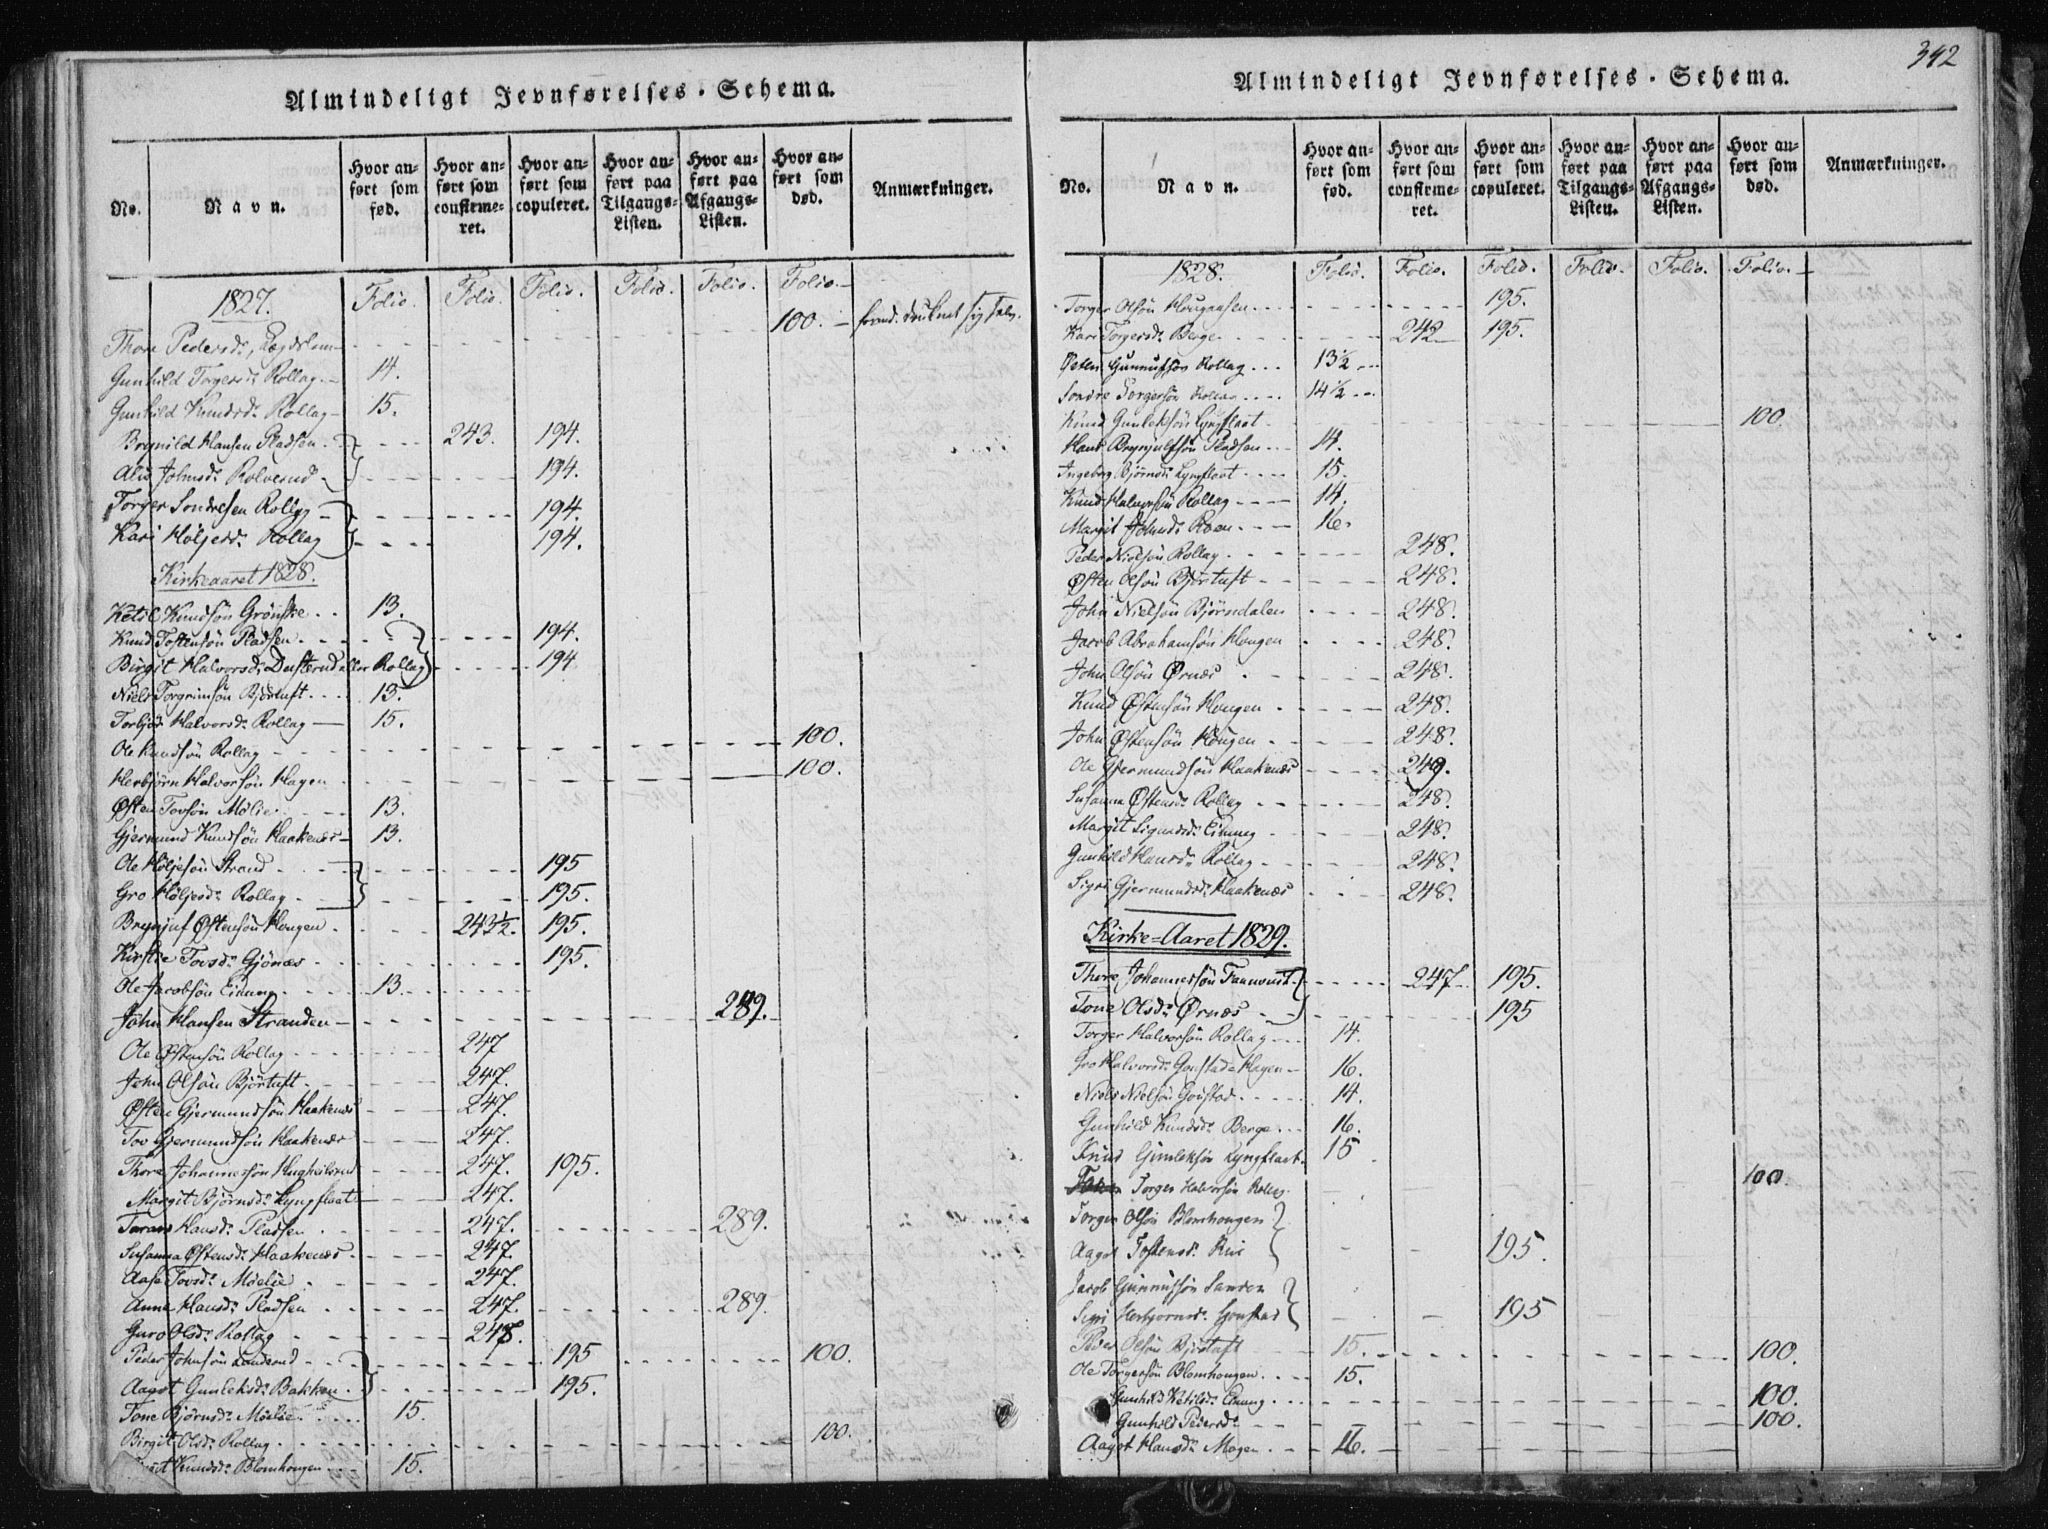 Almindeligt Jevnførelses-Schema.
No. Navn. Hvor anført som fød. Hvor anført som confirmeret. Hvor anført som copuleret. Hvor anført paa Tilgangs-Listen. Hvor anført paa Afgangs-Listen. Hvor anført som død. Anmærkninger.
1827. Folio. Folio. Folio. Folio. Folio. Folio.
Thore Pedersd: Lægdslem 100.
Gunhild Torgersd: Rollag 14.
Gunhild Knudsd: Rollag 15.
Brynild Hansen Pladsen 243. 194.
Alis Johnsd: Rolverud 194.
Torger Sondresen Rollag 194.
Kari Høljesd: Rollag 194.
Kirkeaaret 1828.
Ketil Knudsøn Grønske 13.
Knud Tostensøn Pladsen 194.
Birgit Halvorsd: eller Rollag 194
Niels Torgrimsøn Bjørtuft 13.
Torbjør Halvorsd: Rollag 15.
Ole Knudsøn Rollag 100.
Herbjørn Halvorsøn Hagen 100.
Østen Tovsøn Mølie 13.
Gjermund Knudsøn Haakenæs 13.
Ole Høljesøn Strand 195
Gro Høljesd: Rollag 195.
Brynjuf Østensøn Hougen 243½. 195.
Kirstie Tovsd: Gjønæs 195.
Ole Jacobsøn Einung 13.
John Hansen Stranden 289.
Ole Østensøn Rollag 247
John Olsøn Bjørtuft 247.
Østen Gjermundsøn Haakenæs 247.
Tov Gjermundsøn Haakenæs 247.
Thore Johannessøn 247. 195.
Margit Bjørnsd: Lyngflaat 247.
Taran Hansd: Pladsen 247. 289.
Susanna Østensd: Haakenæs 247.
Aase Tovsd: Mølie 247.
Anne Hansd: Pladsen 247. 289.
Guro Olsd: Rollag 248.
Peder Johnsøn 195 100.
Aagot Gunleksd: Bakken 195.
Tone Bjørnsd: Mølie 15
Birgit Olsd: Rollag 100.
Knudsd: Blomhougen 15.
342
Almindeligt Jevnførelses-Schema.
No. Navn. Hvor anført som fød. Hvor anført som confirmeret. Hvor anført som copuleret. Hvor anført paa Tilgangs-Listen. Hvor anført paa Afgangs-Listen. Hvor anført som død. Anmærkninger.
1828. Folio. Folio. Folio. Folio. Folio. Folio.
Torger Olsøn Hougansen 195.
Kari Torgersd: Berge 242 195.
Peter Gunnufsøn Rollag 13½
Sondre Torgersøn Rollag 14½
Knud Gunleksøn Lyngflaat 100.
Hans Brynjulfsøn Pladsen 14.
Ingeborg Bjørnsd: Lyngflaat 15.
Knud Halvorsøn Rollag 14.
Margit Johnsd: Roen 16.
Peder Nielsøn Rollag 248.
Østen Olsøn Bjørtuft 248.
John Nielsøn Bjørndalen 248.
Jacob Abrahamsøn Hougen 248.
John Olsøn Ørnæs 248.
Knud Østensøn Hougen 248.
John Østensøn Hougen 248.
Ole Gjermundsøn Haakenæs 248.
Susanna Østensd: Rollag 248.
Margit Sigurdsd: Einung 248.
Gunhild Hansd: Rollag 248.
Sigri Gjermundsd: Haakenæs 248.
Kirke=Aaret 1829.
Thore Johannessøn 247 195.
Tone Olsd: Ørnæs 195
Torger Halvorsøn Rollag 14.
Gro Halvorsd: Gøistad=Hagen 16.
Niels Nielsøn Gøistad 14.
Gunhild Knudsd: Berge 16.
Knud Gunleksøn Lyngflaat 15
Torger Halvorsøn Rollag 100.
Torger Olsøn Blomhougen
Aagot Tostensd: 195.
Jacob Gunnufsøn Sanden
Sigri Herbjørnsd: Gøistad 195
Peder Olsøn Bjørtuft 15. 100.
Ole Torgersøn Blomhougen 15.
Gunhild Ketilsd: Einung 100.
Gunhild Pedersd: 100.
Aagot Hansd: Mogen 16.